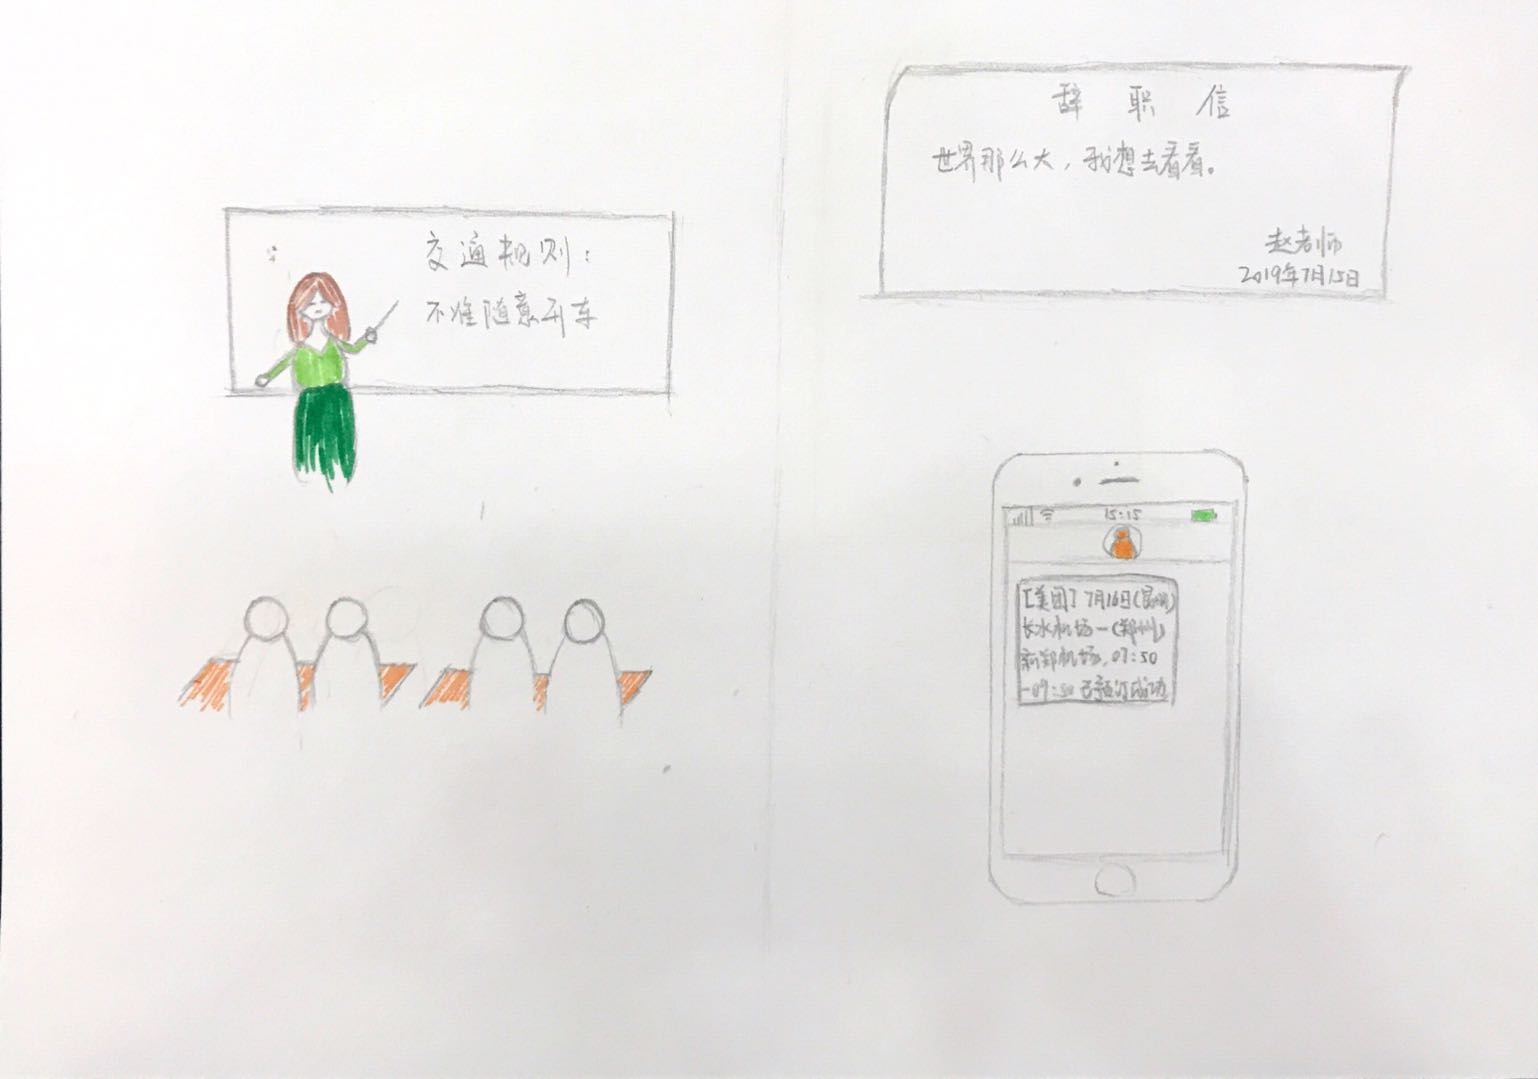 交通规则:
不准随意开车
辞 职 信
世界那么大,我想去看看。
赵老师
2019年7月15日
15:15
[美团]7月16日(昆明)
长水机场-(郑州)
新郑机场,07:50
-09:50已预订成功